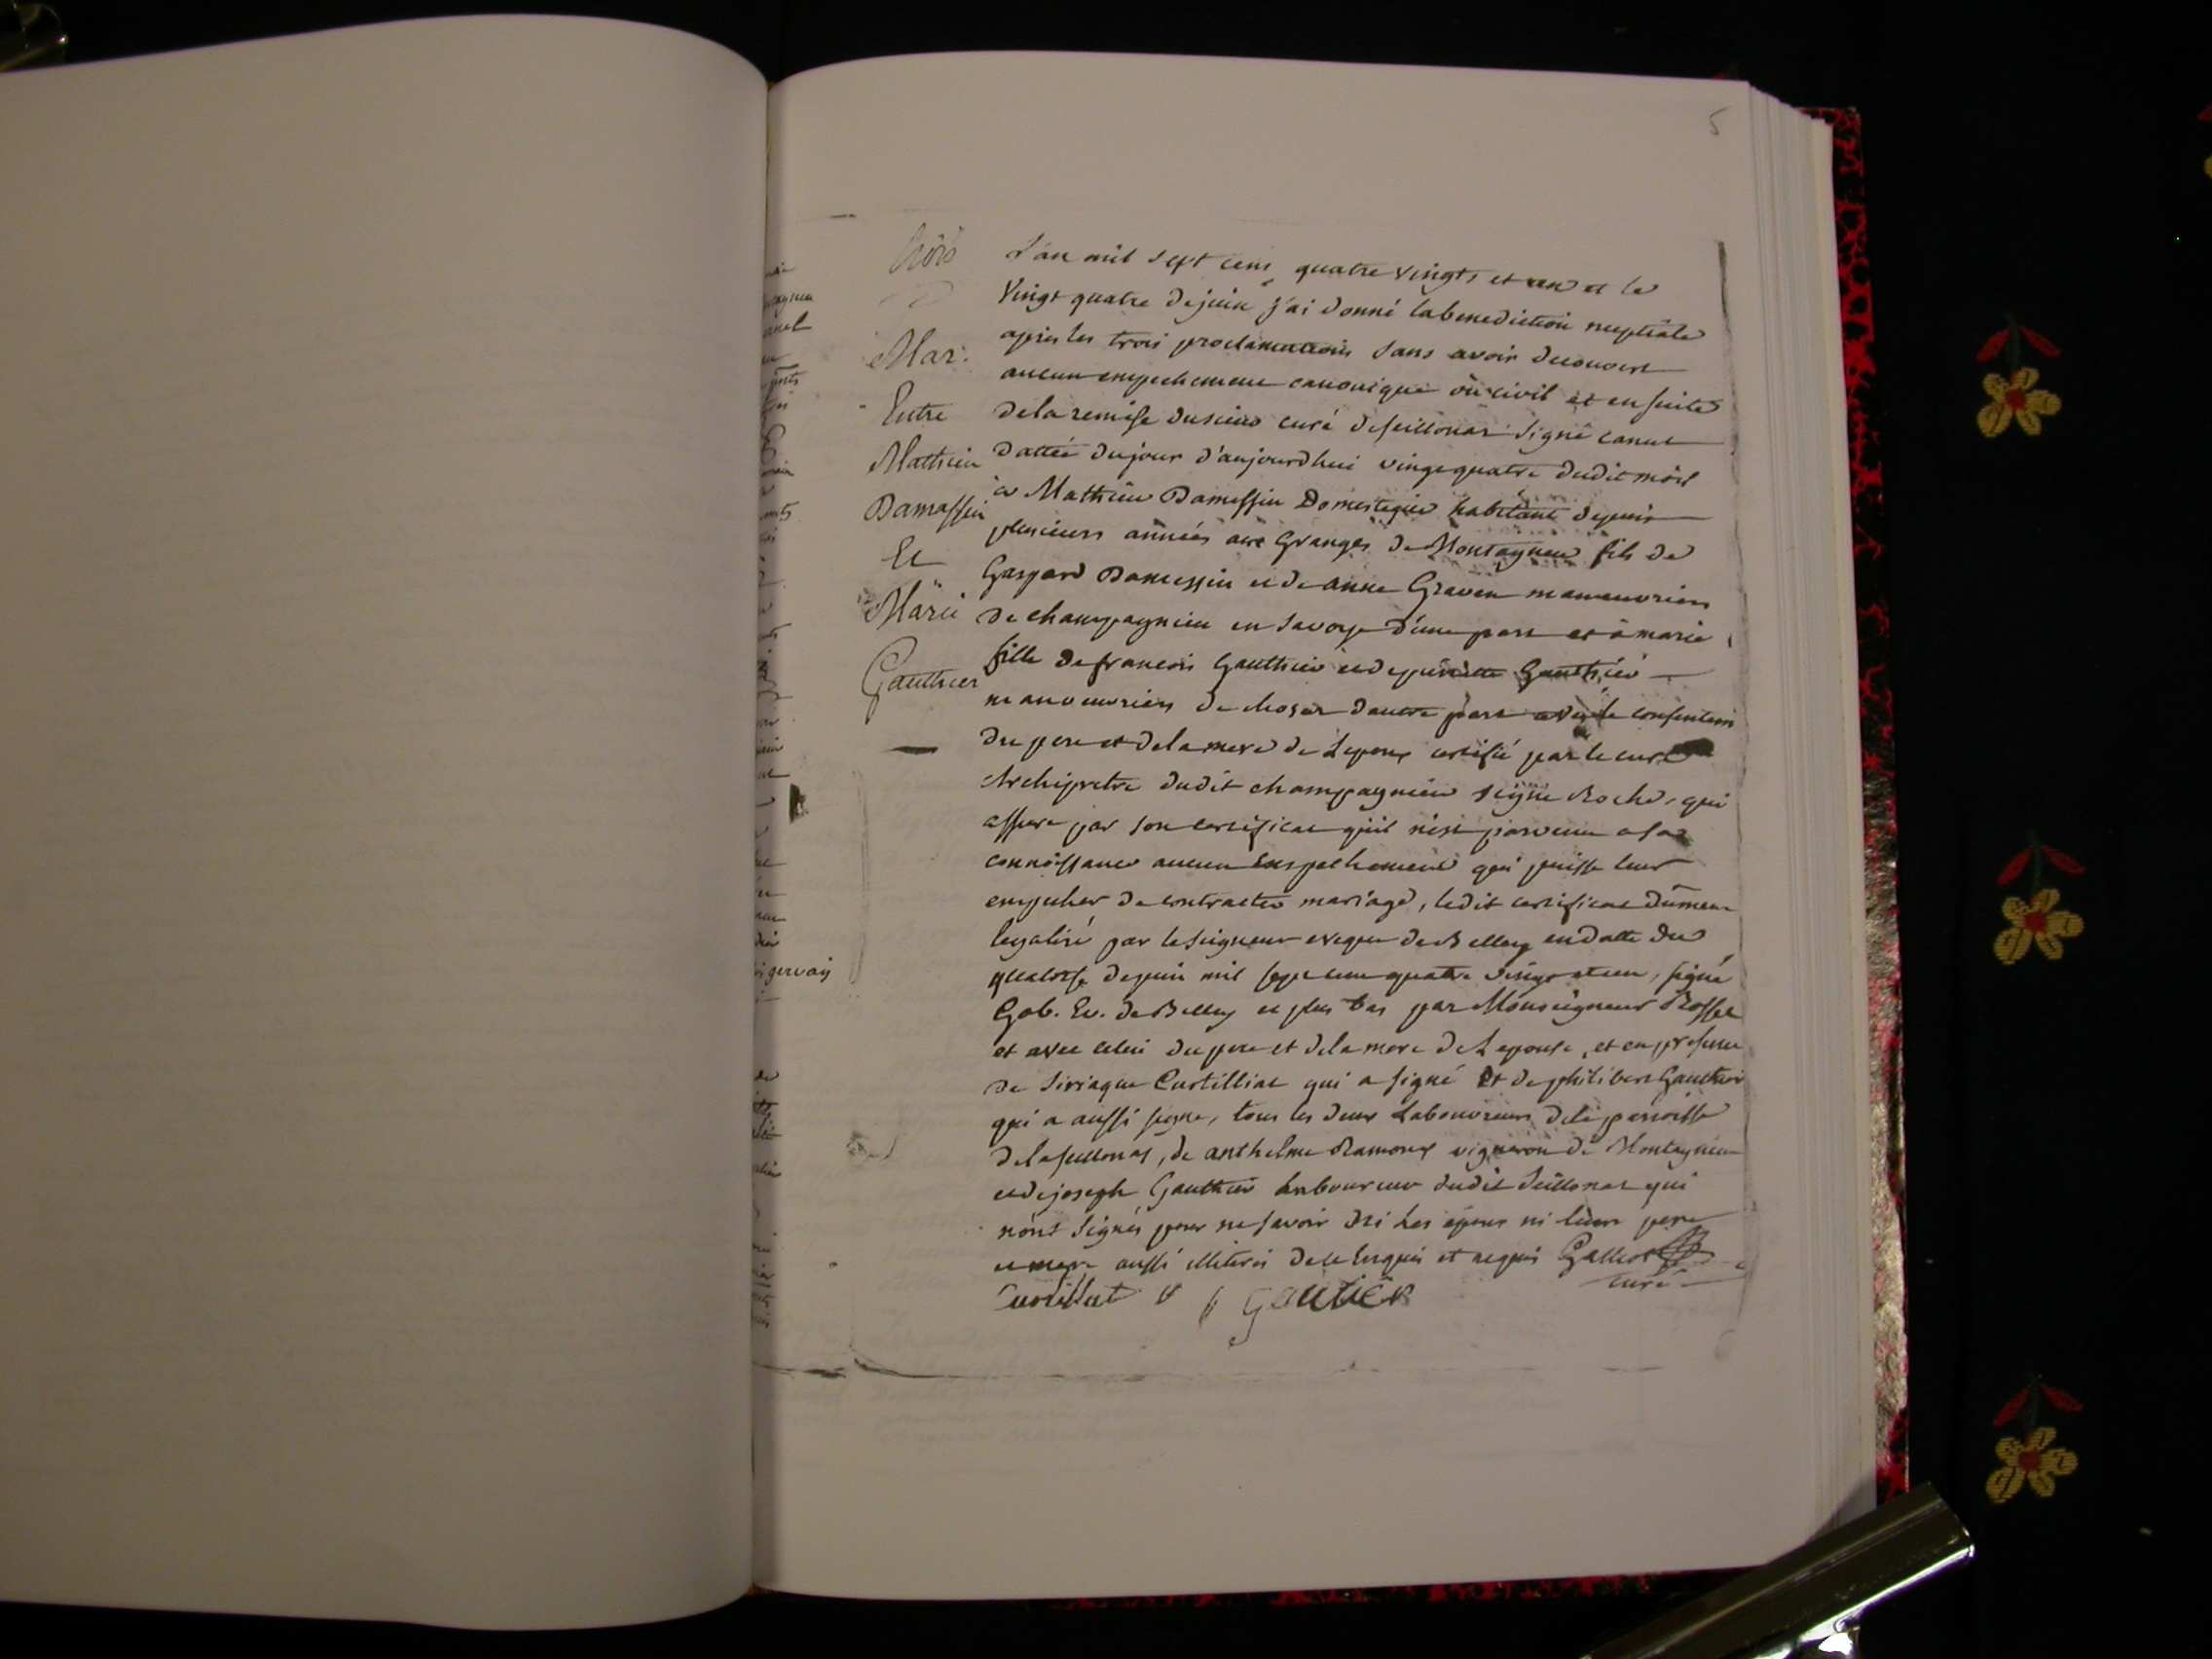 5
L'an mil sept cens quatre vingts et un et le
vingt quatre de juin j'ai donné la benediction nuptiale
apres les trois proclamations sans avoir decouvert
aucun empechement canonique ou civil et ensuite
de la remise du sieur curé de seillonas signé canut
dattée du jour d'aujourdhui vingt quatre dudit mois
a Mathieu Damessin Domestique habitant depuis
plusieurs années aux Granges de Montagneu fils de
Gaspard Damessin et de anne Graven manouvriers
de champagnieu en Savoye d'une part et à marie
fille de francois Gauthier et de Gauthier
manouvriers de d'autre part avec le consentem
du pere et de la mere de Lepoux certifié par le curé
Archipretre dudit champagnieu signé Roche, qui
assure par son certificat qu'il n'est parvenu a sa
connoissance aucun Empechement qui puisse leur
empecher de contracter mariage, ledit certificat dûment
legalisé par le Seigneur eveque de Belley en datte du
quatorse de juin mil sept cent quatre vingt et un, signé
Gab. Ev. de Belley et plus bas par Monseigneur Rosset
et avec celui du pere et de la mere de Lepouse, et en presence
de Siriaque Curtilliat qui a signé Et de philibert Gauthier
qui a aussi signé, tous les deux Laboureurs de la paroisse
de anthelme Ramoux vigneron de Montagneu
et de joseph Gauthier Laboureur dudit Seillonas qui
n'ont signés pour ne savoir ni Les epoux ni leurs pere
et mere aussi illiterés de ce Enquis et requis
curé
GAUTIER
Mar:
Entre
Mathieu
Damassin
Et
Marie
Gauthier
gervais